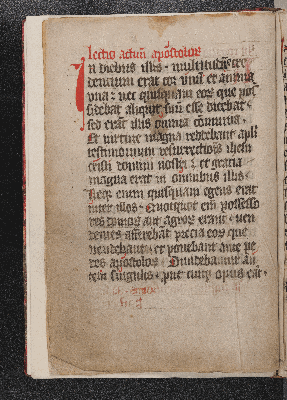 Lectio actuum apostolorum
In diebus illis · multitudinis cre
dentium erat cor unum et anima
una : nec quisquam eorum que pos
sidebat aliquid suum esse dicebat ·
sed erant illis omnia communia ·
Et virtute magna reddebant apli
testimonium resurrectionis ihesu
cristi domini nostri : et gratia
magna erat in omnibus illis ·
Neque enim quisquam egens erat
inter illos · Quotquot enim possesso
res domus aut agrorum erant · ven
dentes afferebant precia eorum que
vendebant · et ponebant ante pe
des apostolorum · Dividebatur au
tem singulis · prout cuique opus erat ·